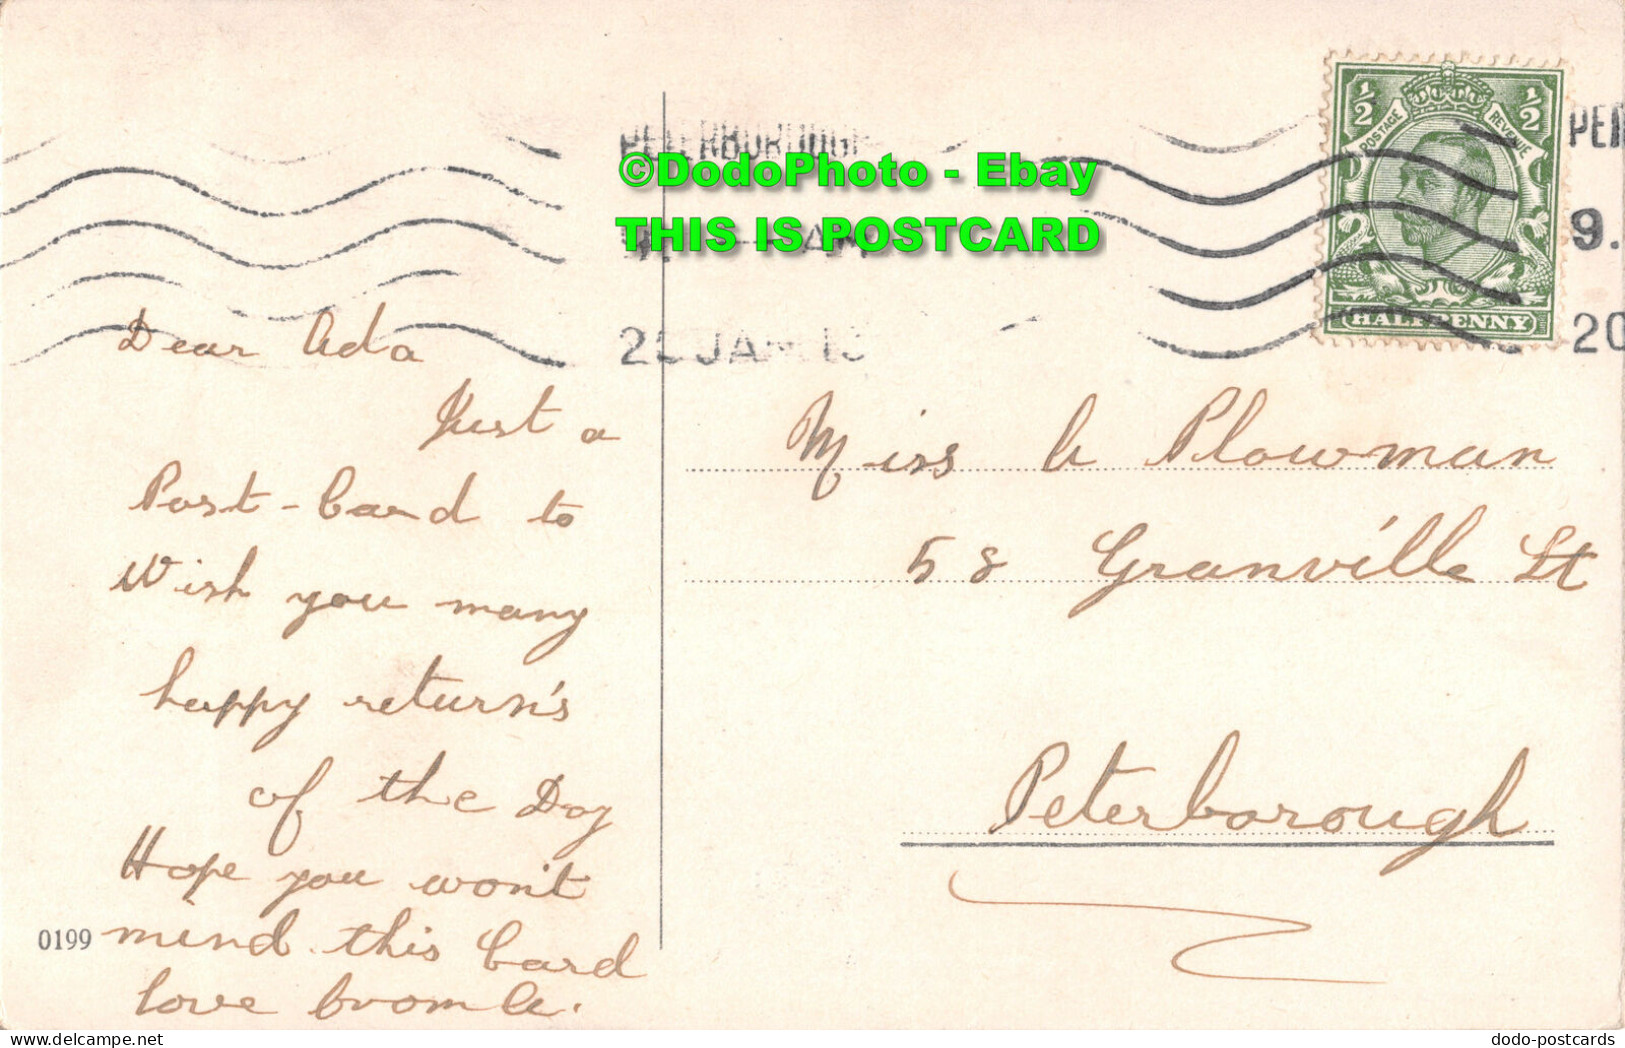 PETERBOROUGH
©DodoPhoto - Ebay
THIS IS POSTCARD
AM
JAN 13
½ ½
POSTAGE REVENUE
HALFPENNY
PE
9.
20
Dear Ada
Just a
Post-Card to
Wish you many
happy return's
of the Day
Hope you won't
mind this Card
love from
0199
Miss A Plowman
58 Granville St
Peterborough
dodo-postcards